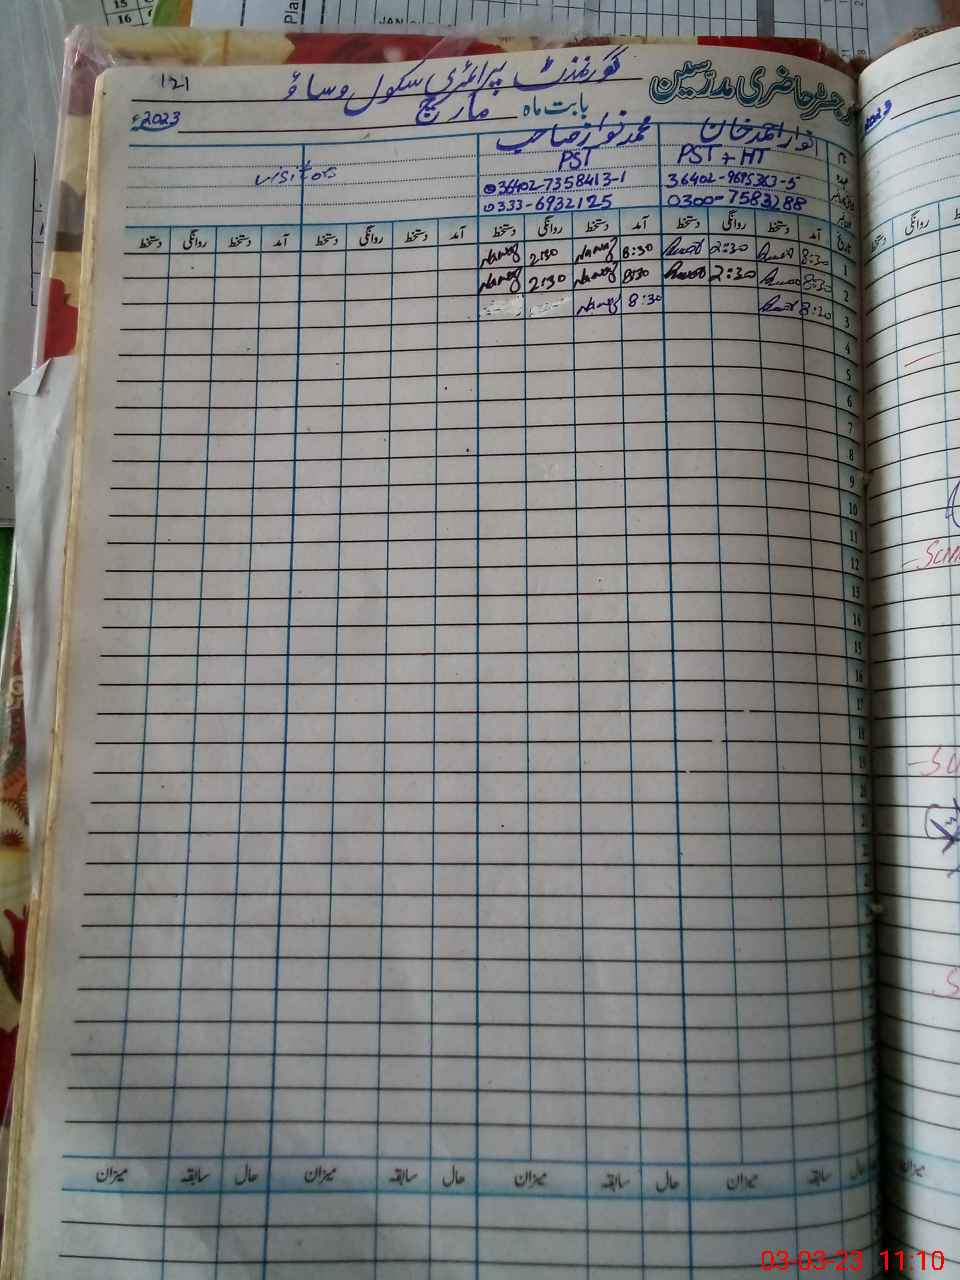 15
16
Pla
JAN
121
گورنمنٹ پرائمری سکول وساؤ
رجسٹر حاضری مدرسین
بابت ماہ مارچ
2023ء
2023
انوار احمد خان
محمد نواز صاحب
visitors
PST + HT
PST
36402-9695363-5
36402-7358413-1
0300-7583288
0333-6932125
تاریخ آمد دستخط روانگی دستخط آمد دستخط روانگی دستخط آمد دستخط روانگی دستخط آمد دستخط روانگی دستخط
روانگی
1 8:30 2:30 8:30 Nawaz 2:30 Nawaz
2 8:30 2:30 8:30 Nawaz 2:30 Nawaz
3 8:20 8:30 Nawaz
4
5
6
7
8
9
10
11
12
13
14
15
16
17
18
19
20
حال سابقہ میزان حال سابقہ میزان حال سابقہ میزان حال سابقہ میزان
میزان
03-03-23 11:10